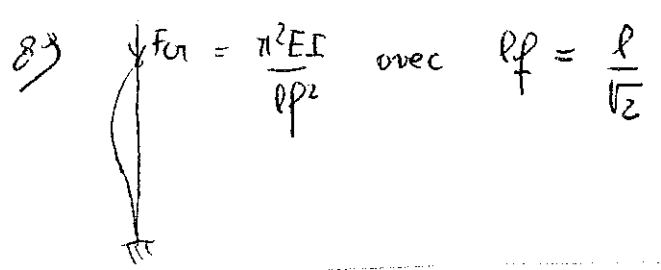 8°) Fcr = π²EI / lf² avec lf = l / √2